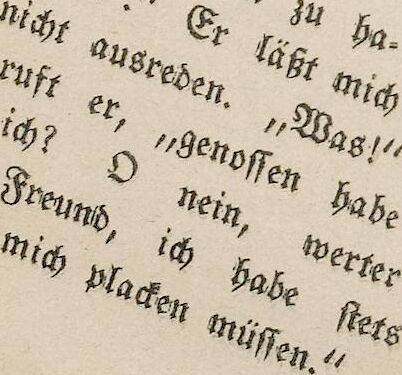 zu ha-
Er läßt mich
nicht ausreden. „Was!“
ruft er, „genoſſen habe
ich? O nein, werter
Freund, ich habe ſtets
mich placken müſſen.“